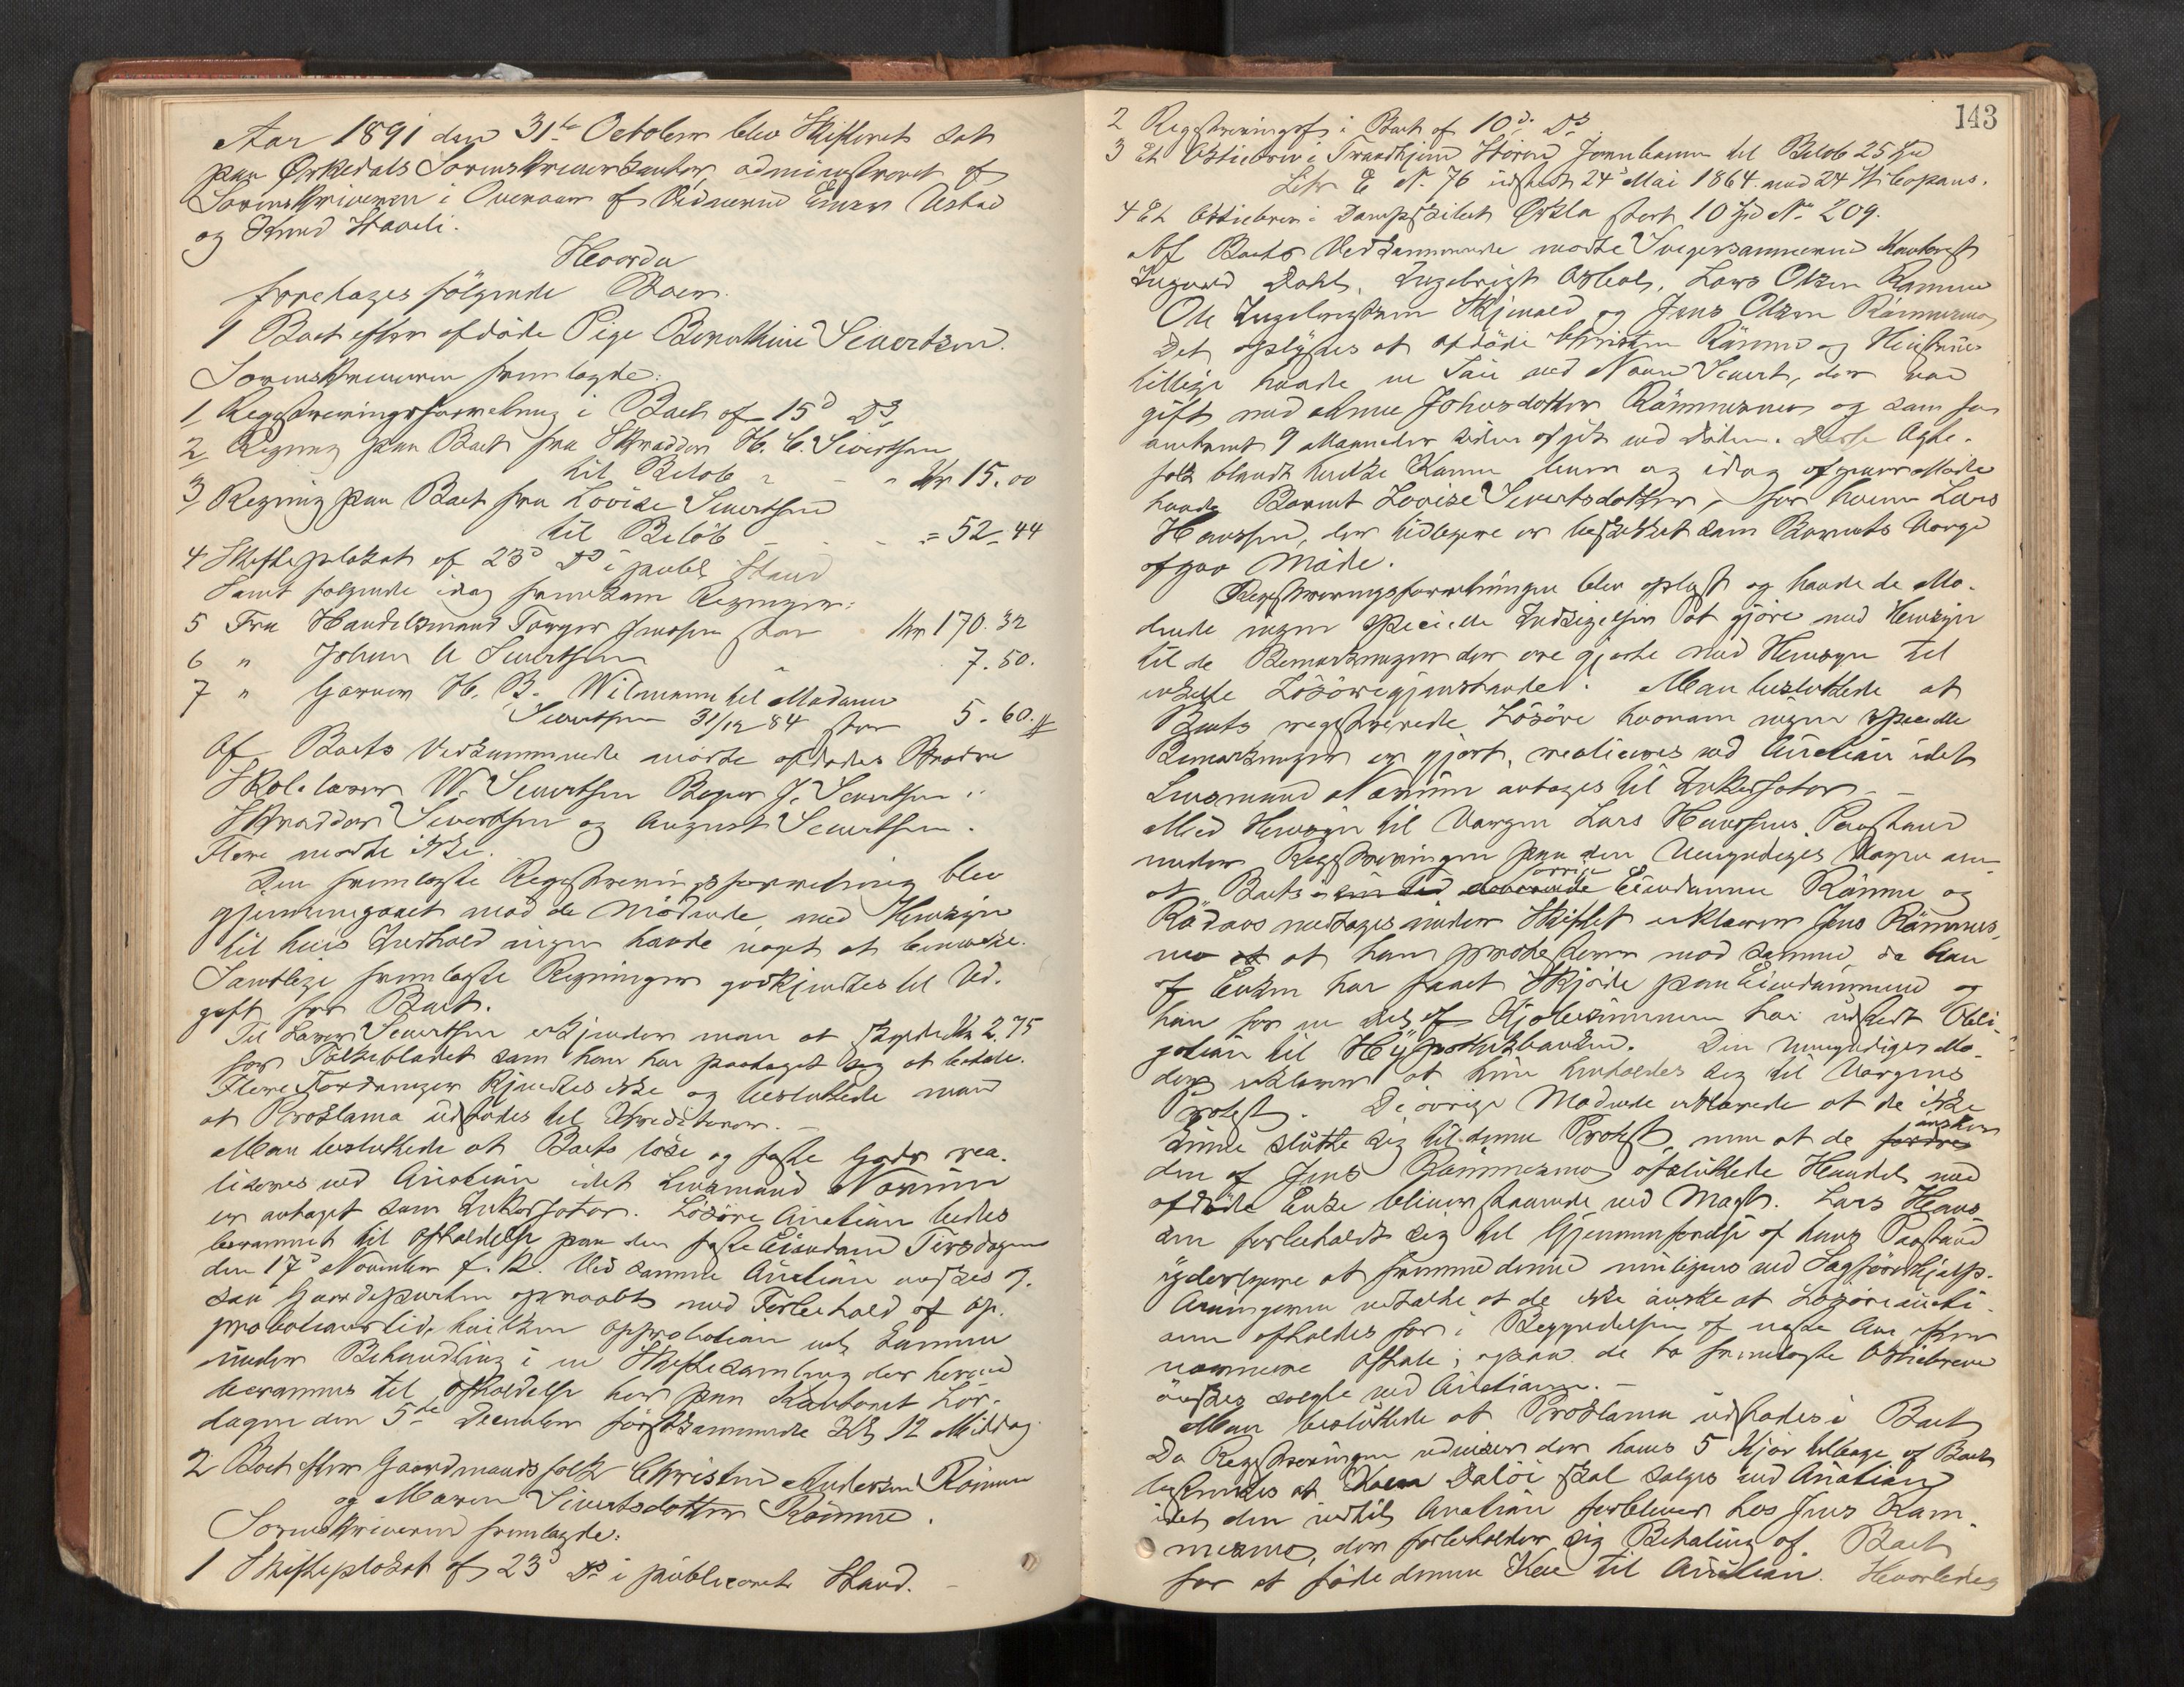 Aar 1891 den 31te October blev Skifteret sat
paa Ørkedals Sorenskriverkontor, administreret af
Sorenskriveren i Overvær af Vidnerne Einar Ustad
og Knud Staveli.
Hvorda
foretages følgende Boer.
1 Boet efter afdøde Pige Bernthine Sivertsen.
Sorenskriveren fremlagde:
1 Registreringsforretning i Boet af 15d Ds
2 Regning paa Boet fra Skrædder H. C. Sivertsen
til Beløb " - " Kr 15.00
3 Regning paa Boet fra Lovise Sivertsen
til Beløb - - - = 52-44
4 Skifteplakat af 23d Ds i publ Stand
Samt følgende idag fremkom Regninger:
5 Fra Handelsmand Torger Jenssen stor Kr 170.32
6 " Johan A Sivertsen " 7.50.
7 " Garver H. B. Wilmann til Madame
Sivertsen 31/12 84 stor 5.60.
Af Boets Vedkommende mødte afdødes Brødre
Skolelærer W. Sivertsen Bager J. Sivertsen
Skrædder Sivertsen og August Sivertsen.
Flere mødte ikke.
Den fremlagte Registreringsforretning blev
gjennemgaaet med de Mødende, med Hensyn
til hvis Indhold ingen havde noget at bemærke.
Samtlige fremlagte Regninger godkjendtes til Ud-
gift for Boet.
Til Lærer Sivertsen erkjender man at skylde Kr 2.75
for Folkebladet som han har paataget sig at betale.
Flere Fordringer kjendtes ikke og besluttede man
at Proklama udstedes til Kreditorer. -
Man besluttede at Boets løse og faste Gods rea-
liseres ved Auktion idet Lensmand Norum
er antaget som Inkassator. Løsøre Auktion bedes
berammet til Afholdelse paa den faste Eiendom Tirsdagen
den 17d November f. k. Ved samme Auktion ønskes og-
saa Gaardeparten opraabt med Forbehold af Ap-
probationstid, hvilken Approbation vil komme
under Behandling i en Skiftesamling der herved
berammes til Afholdelse her paa Kontoret Lør-
dagen den 5te December førstkommende Kl 12 Middag
2 Boet efter Gaardmandsfolk Christen Andersen Rømme
og Maren Sivertsdatter Rømme.
Sorenskriveren fremlagde:
1 Skifteplakat af 23d Ds i publiceret Stand. -
143
2 Registreringsf. i Boet af 10d Ds
3 Et Aktiebrev i Trondhjem Støren Jernbane til Beløb 25 Spd
Litr E No 76 udstedt 24d Mai 1864 med 24 St Coupons.
4 Et Aktiebrev i Dampskibet Ørkla stort 10 Spd No 209.
Af Boets Vedkommende mødte Svigersønnerne Kontorist
Ingvald Dahl, Ingebrigt Asbøl, Lars Olsen Rømme
Ole Ingebrigtsen Skjenald og Jens Olsen Rømmesmo
Det oplystes at afdøde Christen Rømme og Hustru
tillige havde en Søn ved Navn Sivert, der var
gift med Anne Johnsdatter Rømmesmo og som for
omtrent 9 Maaneder siden afgik ved Døden. Disse Ægte-
folk blandt hvilke Konen kom og idag afgaar Møde
havde Barnet Lovise Sivertsdatter, for hvem Lars
Hanssen, der tidligere er beskikket som Barnets Værge
afgav Møde.
Registreringsforretningen blev oplæst og havde de Mø-
dende ingen specielle Indsigelser at gjøre med Hensyn
til de Bemærkninger der ere gjorte med Hensyn til
enkelte Løsøregjenstande. Man besluttede at
Boets registrerede Løsøre hvorom ingen specielle
Bemærkninger er gjort, realiseres ved Auktion idet
Lensmand Norum antages til Inkassator - -
Med Hensyn til Værgen Lars Hanssens Paastand
under Registreringen paa den Umyndiges Vegne om
at Boets forrige Eiendomme Rømme og
Rødaas medtages under Skiftet erklærer Jens Rømmes-
mo at han protesterer mod samme, da han
af Enken har faaet Skjøde paa Eiendommene og
han for en Del af Kjøbesummen har udstedt Obli-
gation til Hypothekbanken. Den Umyndiges Mo-
der erklærer at hun henholder sig til Værgens
Protest. De øvrige Mødende erklærede at de ikke
kunne slutte sig til denne Protest, men at de ønsker
den af Jens Rømmesmo afsluttede Handel med
afdøde Enke bliver staaende ved Magt. Lars Hans-
sen forbeholdt sig til Gjennemførelse af hans Paastand
yderligere at fremme denne muligens ved Sagførerhjælp.
Arvingerne vedtalte at de ikke ønske at Løsøreaukti-
onen afholdes før i Begyndelsen af næste Aar efter
nærmere Aftale; ogsaa de to fremlagte Aktiebreve
ønskes solgte ved Auktionen. -
Man besluttede at Proklama udstedes i Boet
Da Registreringen udviser der haves 5 Kjør tilbage af Boets
bestemtes at Koen Daløi skal sælges ved Auktion
idet den indtil Auktion forbliver hos Jens Røm-
mesmo, der forbeholder sig Betaling af Boet
for at føde denne Ko til Auktion. Hvorledes